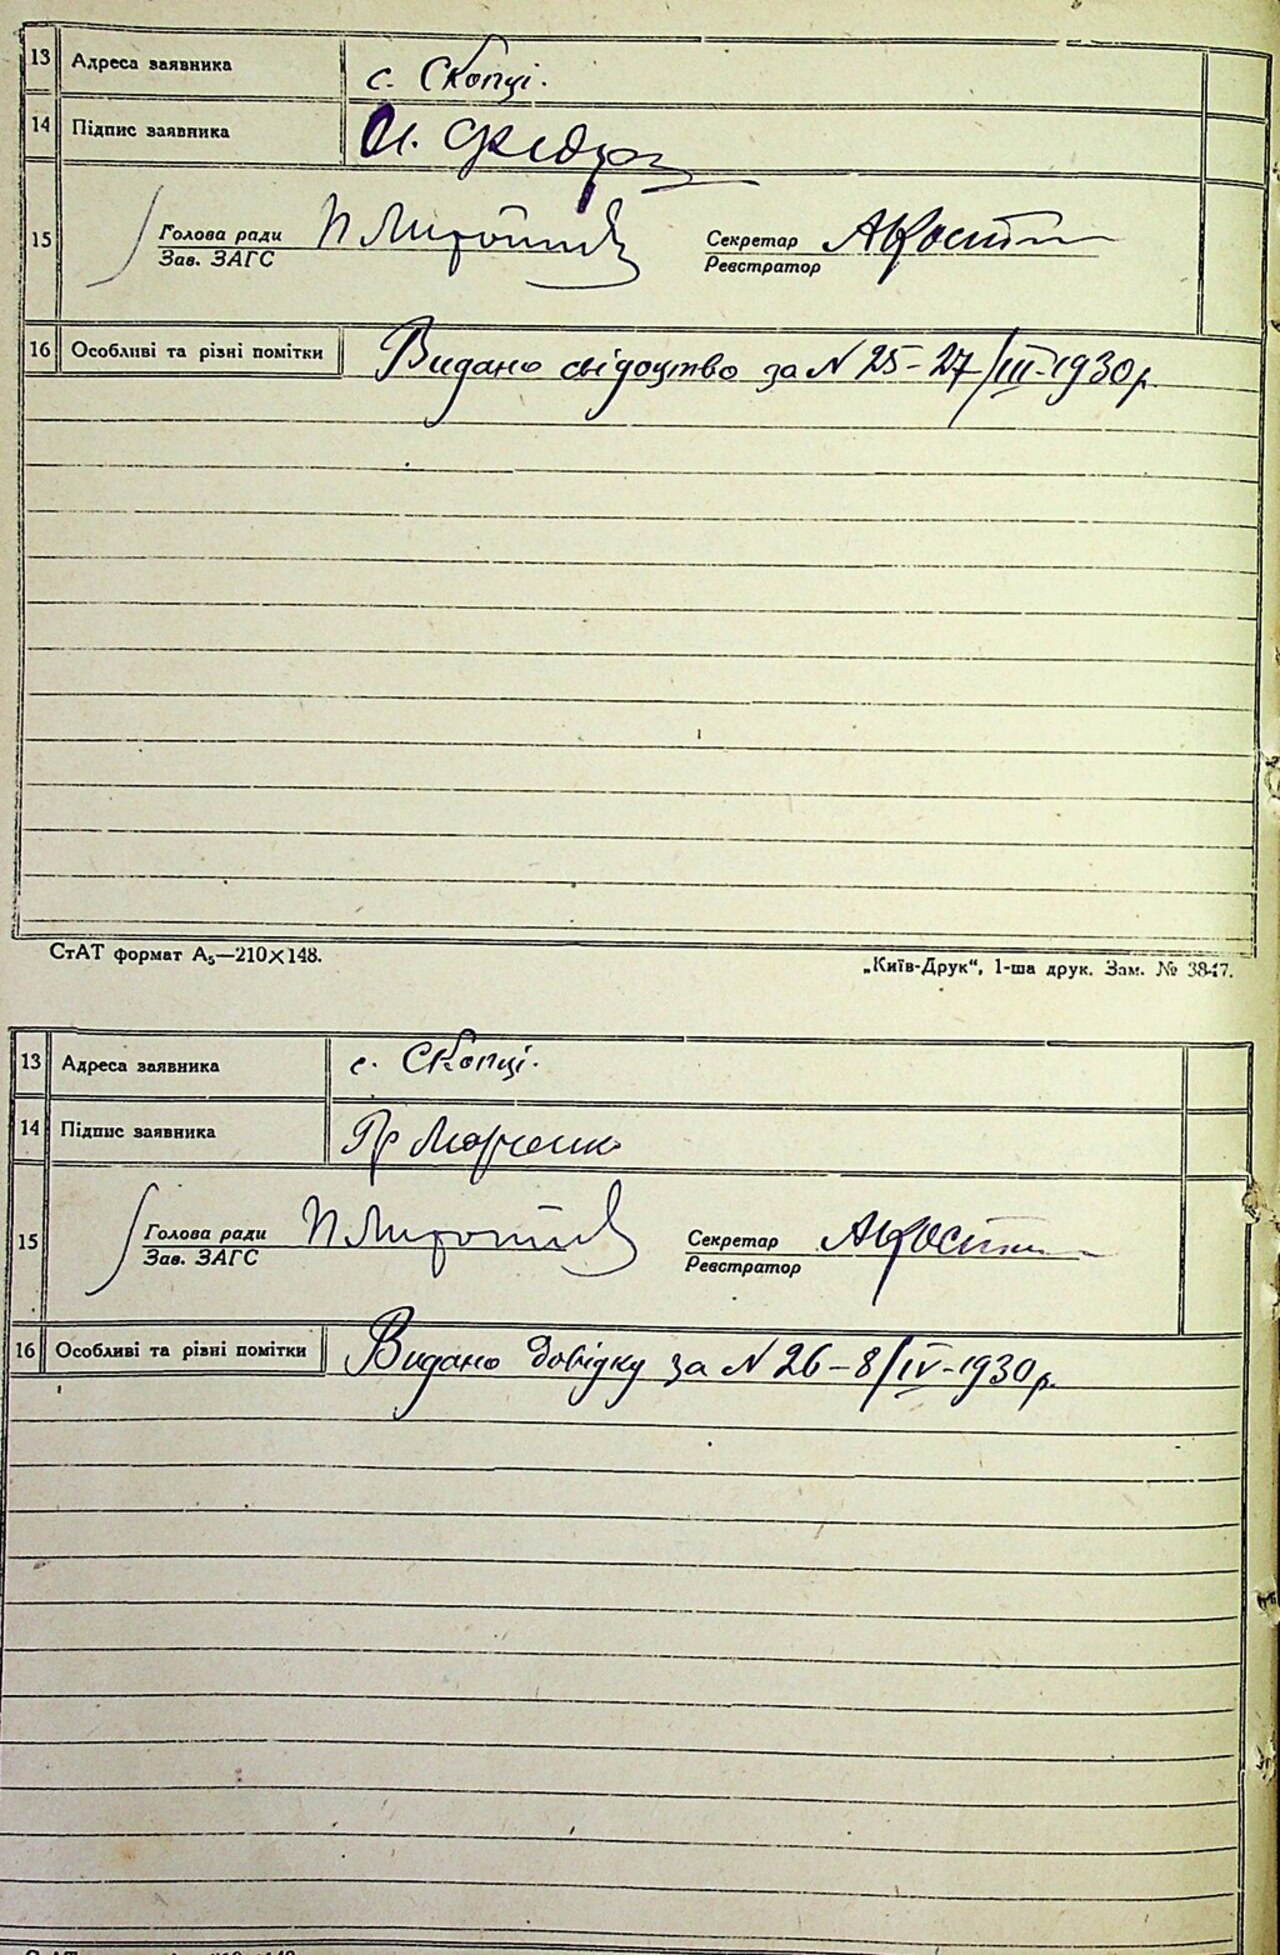 13 Адреса заявника с. Скопці.
14 Підпис заявника
15 Голова ради Секретар
Зав. ЗАГС Реєстратор
16 Особливі та різні помітки Видано свідоцтво за N 25 – 27/III – 1930 р.
СтАТ формат А₅—210×148.
„Київ-Друк“, 1-ша друк. Зам. № 3847.
13 Адреса заявника с. Скопці.
14 Підпис заявника Пр Марченко
15 Голова ради Секретар
Зав. ЗАГС Реєстратор
16 Особливі та різні помітки Видано довідку за N 26 – 8/IV – 1930 р.